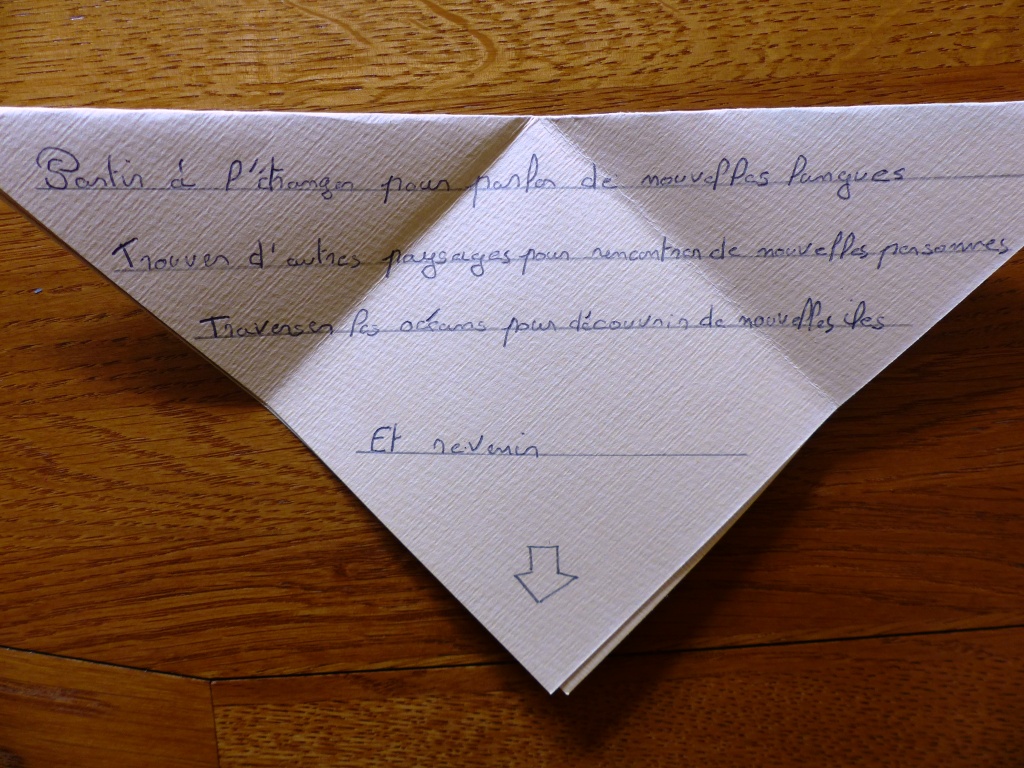 Partir à l'étranger pour parler de nouvelles langues
Trouver d'autres paysages pour rencontrer de nouvelles personnes
Traverser les océans pour découvrir de nouvelles iles
Et revenir